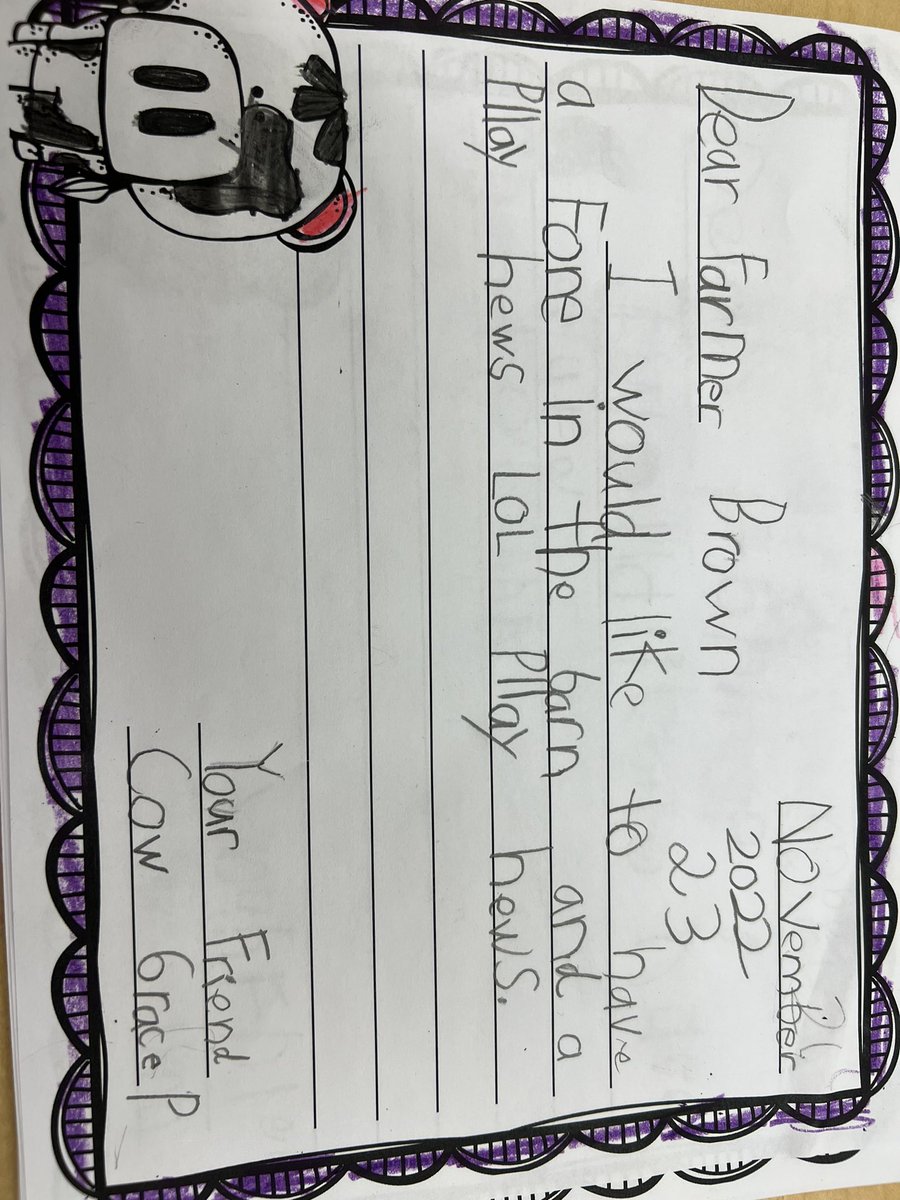 November
2022
23
Dear Farmer Brown
I would like to have
a Fone in the barn and a
Pllay hews LOL Pllay hews.
Your Friend
Cow Grace P